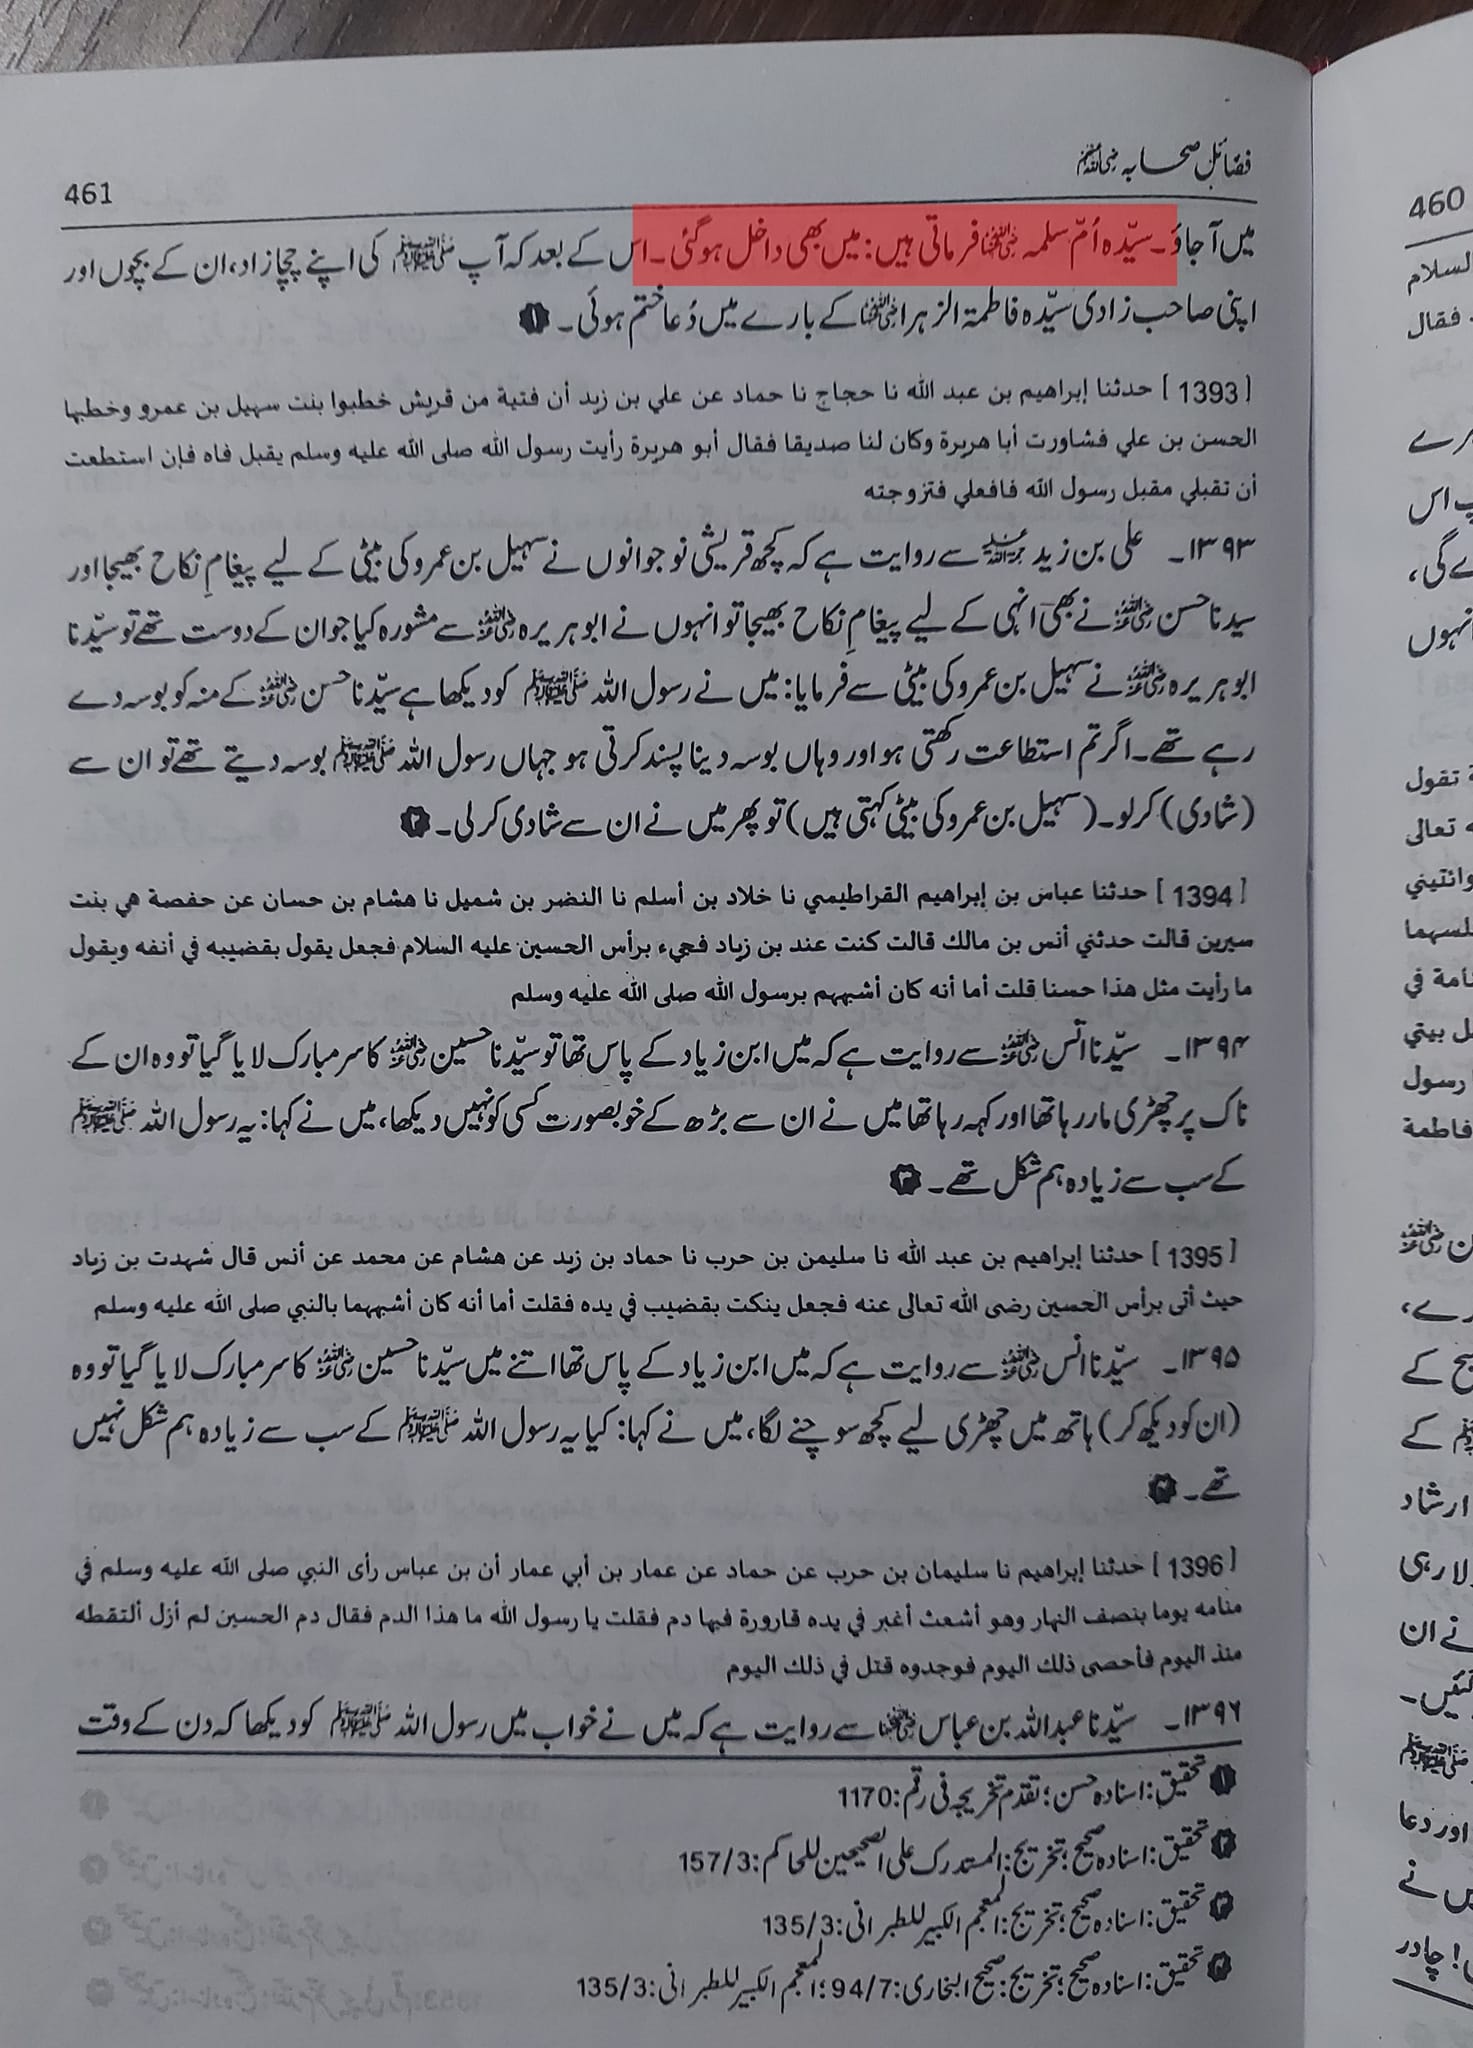 فضائل صحابہ رضی اللہ عنہم
461
میں آجاؤ۔ سیّدہ اُمّ سلمہ رضی اللہ عنہا فرماتی ہیں: میں بھی داخل ہوگئی۔ اس کے بعد کہ آپ ﷺ کی اپنے چچازاد، ان کے بچوں اور
اپنی صاحب زادی سیّدہ فاطمۃ الزہرا رضی اللہ عنہا کے بارے میں دُعا ختم ہوئی۔ ۱
[ 1393 ] حدثنا إبراهيم بن عبد الله نا حجاج نا حماد عن علي بن زيد أن فتية من قريش خطبوا بنت سهيل بن عمرو وخطبها
الحسن بن علي فشاورت أبا هريرة وكان لنا صديقا فقال أبو هريرة رأيت رسول الله صلى الله عليه وسلم يقبل فاه فإن استطعت
أن تقبلي مقبل رسول الله فافعلي فتزوجته
۱۳۹۳۔ علی بن زید رحمہ اللہ سے روایت ہے کہ کچھ قریشی نوجوانوں نے سہیل بن عمرو کی بیٹی کے لیے پیغامِ نکاح بھیجا اور
سیدنا حسن رضی اللہ عنہ نے بھی انہی کے لیے پیغامِ نکاح بھیجا تو انہوں نے ابو ہریرہ رضی اللہ عنہ سے مشورہ کیا جو ان کے دوست تھے تو سیّدنا
ابو ہریرہ رضی اللہ عنہ نے سہیل بن عمرو کی بیٹی سے فرمایا: میں نے رسول اللہ ﷺ کو دیکھا ہے سیّدنا حسن رضی اللہ عنہ کے منہ کو بوسہ دے
رہے تھے۔ اگر تم استطاعت رکھتی ہو اور وہاں بوسہ دینا پسند کرتی ہو جہاں رسول اللہ ﷺ بوسہ دیتے تھے تو ان سے
(شادی) کرلو۔ (سہیل بن عمرو کی بیٹی کہتی ہیں) تو پھر میں نے ان سے شادی کرلی۔ ۲
[ 1394 ] حدثنا عباس بن إبراهيم القراطيسي نا خلاد بن أسلم نا النضر بن شميل نا هشام بن حسان عن حفصة هي بنت
سيرين قالت حدثني أنس بن مالك قالت كنت عند بن زياد فجيء برأس الحسين عليه السلام فجعل يقول بقضيبه في أنفه ويقول
ما رأيت مثل هذا حسنا قلت أما أنه كان أشبههم برسول الله صلى الله عليه وسلم
۱۳۹۴۔ سیّدنا انس رضی اللہ عنہ سے روایت ہے کہ میں ابن زیاد کے پاس تھا تو سیّدنا حسین رضی اللہ عنہ کا سر مبارک لایا گیا تو وہ ان کے
ناک پر چھڑی مار رہا تھا اور کہہ رہا تھا میں نے ان سے بڑھ کے خوبصورت کسی کو نہیں دیکھا، میں نے کہا: یہ رسول اللہ ﷺ
کے سب سے زیادہ ہم شکل تھے۔ ۳
[ 1395 ] حدثنا إبراهيم بن عبد الله نا سليمن بن حرب نا حماد بن زيد عن هشام عن محمد عن أنس قال شهدت بن زياد
حيث أتى برأس الحسين رضى الله تعالى عنه فجعل ينكت بقضيب في يده فقلت أما أنه كان أشبههما بالنبي صلى الله عليه وسلم
۱۳۹۵۔ سیّدنا انس رضی اللہ عنہ سے روایت ہے کہ میں ابن زیاد کے پاس تھا اتنے میں سیّدنا حسین رضی اللہ عنہ کا سر مبارک لایا گیا تو وہ
(ان کو دیکھ کر) ہاتھ میں چھڑی لیے کچھ سوچنے لگا، میں نے کہا: کیا یہ رسول اللہ ﷺ کے سب سے زیادہ ہم شکل نہیں
تھے۔ ۴
[ 1396 ] حدثنا إبراهيم نا سليمان بن حرب عن حماد عن عمار بن أبي عمار أن بن عباس رأى النبي صلى الله عليه وسلم في
منامه يوما بنصف النهار وهو أشعث أغبر في يده قارورة فيها دم فقلت يا رسول الله ما هذا الدم فقال دم الحسين لم أزل ألتقطه
منذ اليوم فأحصى ذلك اليوم فوجدوه قتل في ذلك اليوم
۱۳۹۶۔ سیّدنا عبداللہ بن عباس رضی اللہ عنہما سے روایت ہے کہ میں نے خواب میں رسول اللہ ﷺ کو دیکھا کہ دن کے وقت
۱ تحقیق: اسنادہ حسن؛ تقدم تخریجہ فی رقم: 1170
۲ تحقیق: اسنادہ صحیح؛ تخریج: المستدرک علی الصحیحین للحاکم: 157/3
۳ تحقیق: اسنادہ صحیح؛ تخریج: المعجم الکبیر للطبرانی: 135/3
۴ تحقیق: اسنادہ صحیح؛ تخریج: صحیح البخاری: 94/7؛ المعجم الکبیر للطبرانی: 135/3
460
السلام
فقال
پ اس
ے گی،
انہوں
ة تقول
ه تعالى
وائتيني
ل بيتي
رسول
فاطمة
رے،
کے
ارشاد
لا رہی
نے ان
اور دعا
میں نے
! چادر